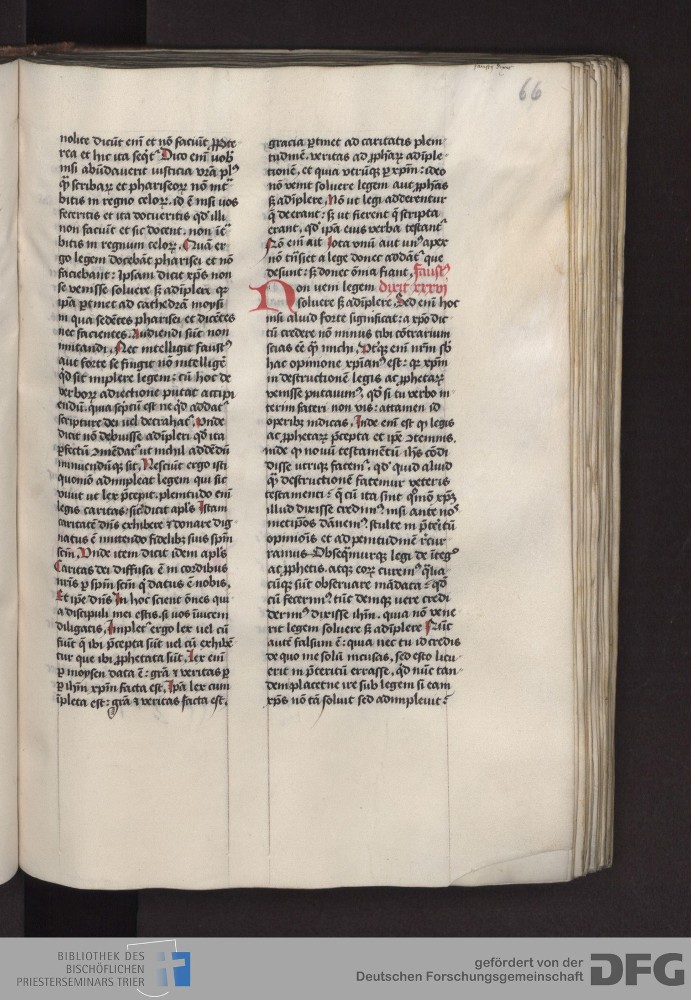 66
nolite dicūt em̄ et nō faciūt ꝓpte
rea et hic ita seqͥtᷣ Dico em̄ uob̄
nisi abūdauerit iusticia vr̄a plꝰ
qͣ̄ scribaꝝ et phariseoꝝ nō int̄
bitis in regno celoꝝ. id ē nisi uos
feceritis et ita docueritis qd̓ illi
non faciūt et sic docent. non īt̄
bitis in regnum celoꝝ. Quā er
go legem docebāt pharisei et nō
faciebant: Ipsam dicit xp̄s non
se venisse soluere sꝫ adīplere qꝛ
ip̄a ꝑtinet ad cathedrā moysi
in qua sedētes pharisei et dicētes
nec facientes. Audiendi sūt non
imitandi. Nec intelligit faustꝰ
aut forte se fingit nō intelligē
qd̓ sit implere legem: cū hoc de
verboꝝ adiectione putat accipi
endū. quia sc̄ptū est ne qd̓ addatᷣ
scripture dei uel detrahatᷣ. Vnde
dicit nō debuisse adīpleri qd̓ ita
ꝑfectū ꝯmēdatᷣ ut nichil addēdū
minuendūqꝫ sit. Nesciūt ergo isti
quomō adimpleat legem qui sic
viuit ut lex p̄cepit. plenitudo em̄
legis caritas: sic̄ dicit apl̄s Istam
caritatē dn̄s exhibere ⁊ donare dig
natus ē mittendo fidelibꝫ suis sp̄m
sc̄m. Vnde item dicit idem apl̄s
Caritas dei diffusa ē in cordibus
nr̄is ꝑ sp̄m sc̄m qͥ datus ē nobis.
Et ip̄e dn̄s In hoc scient om̄es qui
a discipuli mei estis. si uos īuicem
diligatis. Impletᷣ ergo lex uel cū
fiūt qͣ ibi p̄cepta sūt uel cū exhibē
tur que ibi ꝓphetata sūt. Lex em̄
ꝑ moysen data ē: gr̄a ⁊ veritas ꝑ
ꝑ ihm̄ xp̄m facta est. Ip̄a lex cum
īpleta est: gr̄a ⁊ veritas facta est.
gracia ꝑtinet ad caritatis pleni
tudinē. veritas ad ꝓphaꝝ adīple
tionē. et quia vtrūqꝫ ꝑ xp̄m: ideo
nō venit soluere legem aut ꝓphās
sꝫ adīplere. Nō ut legi adderentur
qͣ deerant: sꝫ ut fierent qͣ scripta
erant. qd̓ ip̄a eius verba testantᷣ
Nō em̄ ait Iota vnū aut vnꝰ apex
nō trāsiet a lege donec addātᷣ que
desunt: sꝫ donec om̄ia fiant. faustꝰ
Non veni legem dixit xxxvi
soluere sꝫ adīplere Sed em̄ hoc
nisi aliud forte significat: a xp̄o dic
tū credere nō minus tibi cōtrarium
scias eē qͣ̄ michi. Vtꝫqꝫ em̄ nr̄m sb̄
hac opinione xp̄ianꝰ est: qꝛ xp̄m
in destructionē legis ac ꝓphetaꝝ
venisse putauimꝰ. qd̓ si tu verbo in
terim fateri non vis: attamen id
operibꝫ indicas. Inde em̄ est qͥ legis
ac ꝓphetaꝝ p̄cepta et ip̄e ꝯtemnis.
inde qͥ nouū testamētū ih̄s cōdi
disse vtriqꝫ fatemᷣ. qd̓ quid aliud
qͣ̄ destructionē fatemur veteris
testamenti: qͣ cū ita sint qͦmō xp̄m
illud dixisse credimꝰ: nisi ante nos
metip̄os dānemꝰ: stulte in p̄teritū
opinioīs et ad penitudinem rͨcur
ramus Obseqͥmurqꝫ legi de īteg̊
ac ꝓphetis. atqꝫ eoꝝ curemꝰ qͣlia
cūqꝫ sūt obseruare mādata: qd̓
cū fecerimꝰ: tūc demqꝫ uere credi
derimꝰ dixisse ihm̄. quia nō vene
rit legem soluere sꝫ adīplere Nūc
autē falsum ē: quia nec tu id credis
de quo me solū incusas. sed esto licu
erit in p̄teritū errasse. qd̓ nūc tan
dem placetne ire sub legem si eam
xp̄s nō tā soluit sed adimpleuit:
BIBLIOTHEK DES
BISCHÖFLICHEN
PRIESTERSEMINARS TRIER
gefördert von der
Deutschen Forschungsgemeinschaft
DFG